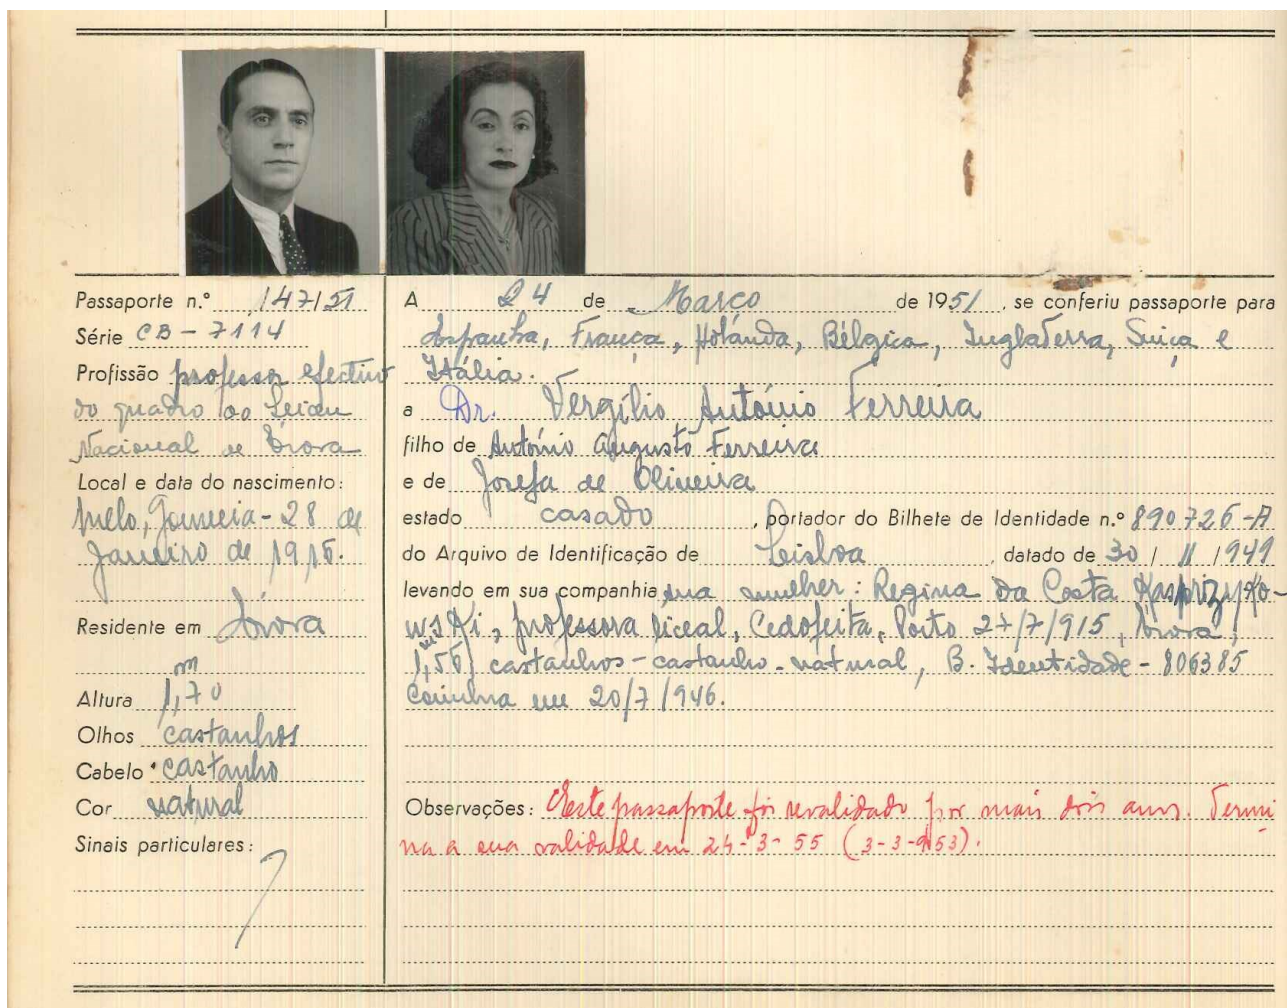 Passaporte n.º 147/51
Série CB - 7114
Profissão professor efectivo
do quadro do Liceu
Nacional de Évora
Local e data do nascimento:
Melo, Gouveia - 28 de
Janeiro de 1916.
Residente em Évora
Altura 1,70 m
Olhos castanhos
Cabelo castanho
Cor natural
Sinais particulares:
A 24 de Março de 1951, se conferiu passaporte para
Espanha, França, Holanda, Bélgica, Inglaterra, Suiça e
Itália.
a Dr. Vergílio António Ferreira
filho de António Augusto Ferreira
e de Josefa de Oliveira
estado casado, portador do Bilhete de Identidade n.º 890726-A
do Arquivo de Identificação de Lisboa, datado de 30/11/1949
levando em sua companhia sua mulher: Regina da Costa Kasprzyko-
wski, professora liceal, Cedofeita, Porto 27/7/915, Évora,
1,56 m castanhos - castanho - natural, B. Identidade - 806385
Coimbra em 20/7/946.
Observações: Este passaporte foi revalidado por mais dois anos. Termi-
na a sua validade em 24-3-55 (3-3-953).